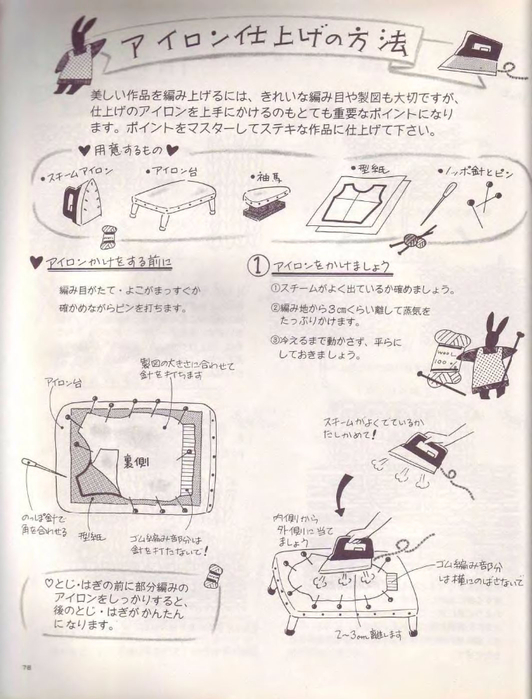 アイロン仕上げの方法
美しい作品を編み上げるには、きれいな編み目や製図も大切ですが、
仕上げのアイロンを上手にかけるのもとても重要なポイントになり
ます。ポイントをマスターしてステキな作品に仕上げて下さい。
♥用意するもの♥
•スチームアイロン
•アイロン台
•袖馬
•型紙
•ノッポ針とピン
♥アイロンかけをする前に
編み目がたて・よこがまっすぐか
確かめながらピンを打ちます。
製図の大きさに合わせて
針を打ちます
アイロン台
裏側
のっぽ針で
角を合わせる
型紙
ゴム編み部分は
針を打たないで!
♡とじ・はぎの前に部分編みの
アイロンをしっかりすると、
後のとじ・はぎがかんたん
になります。
① アイロンをかけましょう
①スチームがよく出ているか確めましょう。
②編み地から3cmくらい離して蒸気を
たっぷりかけます。
③冷えるまで動かさず、平らに
しておきましょう。
WOOL
100%
スチームがよくでているか
たしかめて!
内側から
外側に当て
ましょう
ゴム編み部分
は横にのばさないで
2〜3cm離します
78